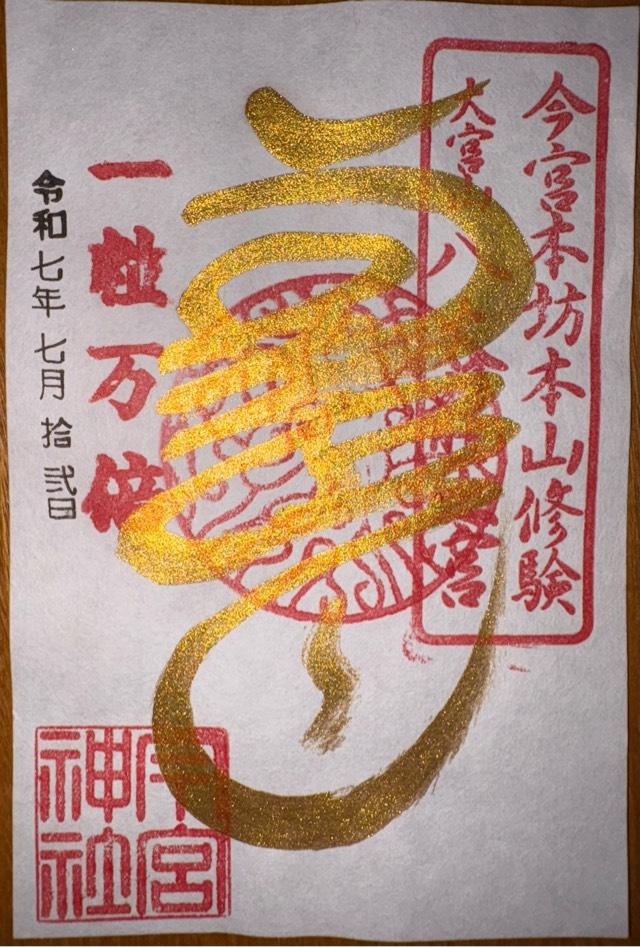 今宮本坊本山修験
大宮山八
宮
一粒万倍
令和七年七月拾弐日
今宮
神社